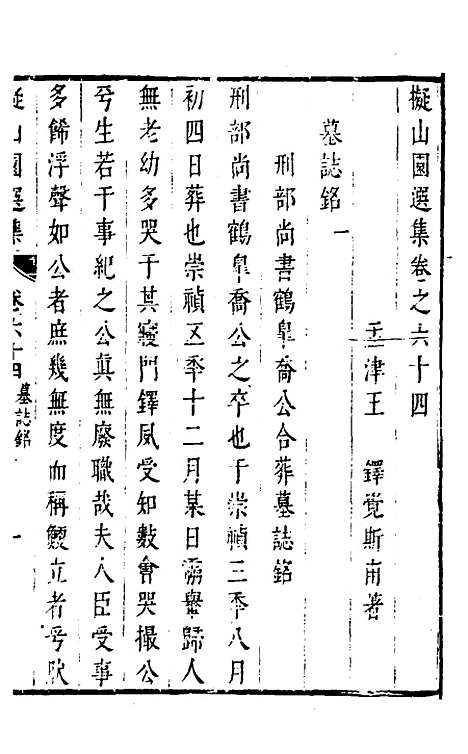 擬山園選集卷之六十四
孟津王 鐸覺斯甫著
墓誌銘一
刑部尚書鶴臯喬公合葬墓誌銘
刑部尚書鶴臯喬公之卒也于崇禎三年八月
初四日葬也崇禎五年十二月某日霱舉歸人
無老幼多哭于其寢門鐸夙受知數會哭撮公
兮生若干事紀之公眞無廢職哉夫人臣受事
多餙浮聲如公者庶幾無度而稱鯁立者兮歐
擬山園選集 卷六十四 墓誌銘 一